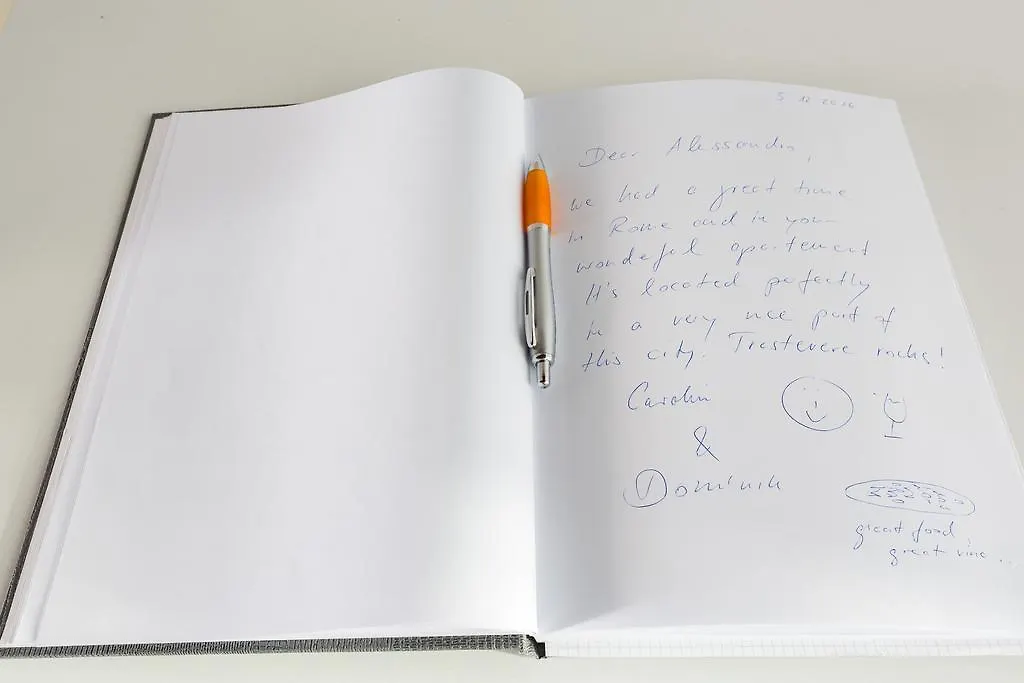 5 12 2016
Dear Alessandro,
we had a great time
in Rome and in your
wonderful apartement
It's located perfectly
in a very nice part of
this city. Trastevere rocks!
Carolin
&
Dominik
great food,
great vine...